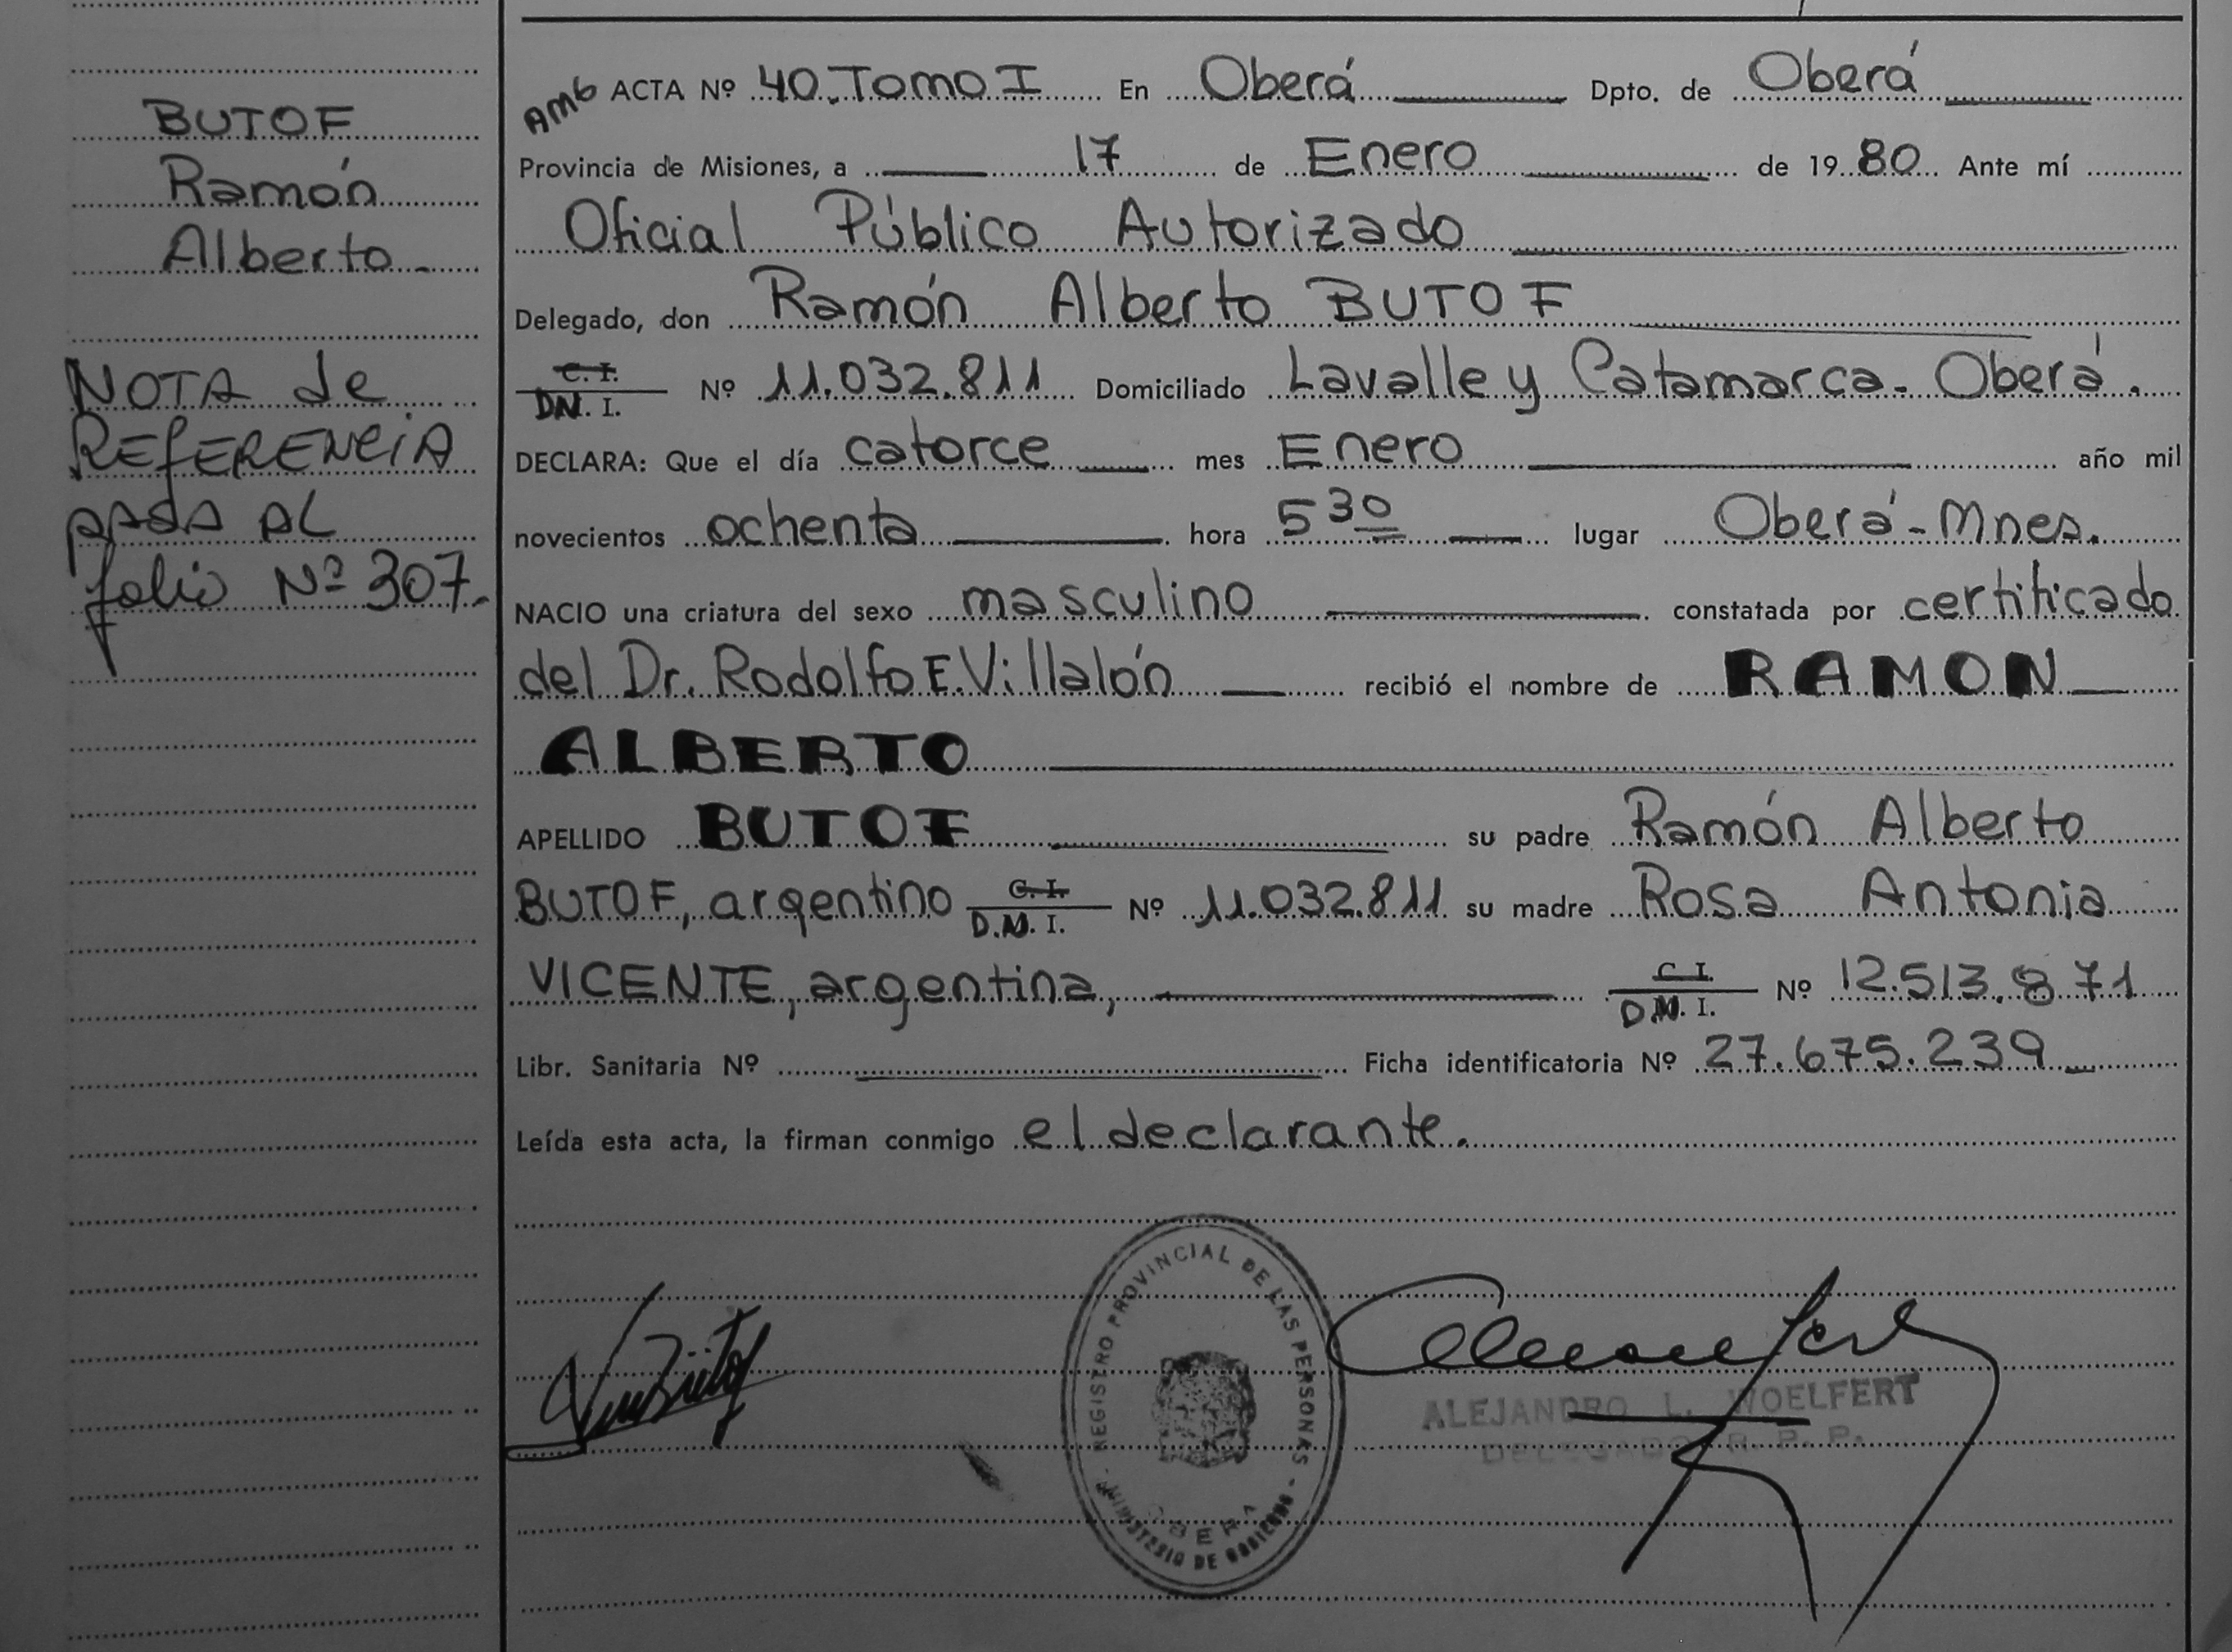 BUTOF
Ramón
Alberto.
NOTA de
REFERENCIA
PASA AL
folio Nº 307.
AMB ACTA Nº 40. Tomo I En Oberá Dpto. de Oberá
Provincia de Misiones, a 17 de Enero de 1980 Ante mí
Oficial Público Autorizado
Delegado, don Ramón Alberto BUTOF
C. I.
DN. I. Nº 11.032.811 Domiciliado Lavalle y Catamarca. Oberá.
DECLARA: Que el día catorce mes Enero año mil
novecientos ochenta hora 5 30 lugar Oberá - Mnes.
NACIO una criatura del sexo masculino constatada por certificado
del Dr. Rodolfo E. Villalón recibió el nombre de RAMON
ALBERTO
APELLIDO BUTOF su padre Ramón Alberto
BUTOF, argentino C. I. Nº 11.032.811 su madre Rosa Antonia
D.N. I.
VICENTE, argentina, C I. Nº 12.513.871
D.N. I.
Libr. Sanitaria Nº Ficha identificatoria Nº 27.675.239
Leída esta acta, la firman conmigo el declarante.
REGISTRO PROVINCIAL DE LAS PERSONAS
OBERA
MINISTERIO DE GOBIERNO
ALEJANDRO L. WOELFERT
DELEGADO R. P. P.